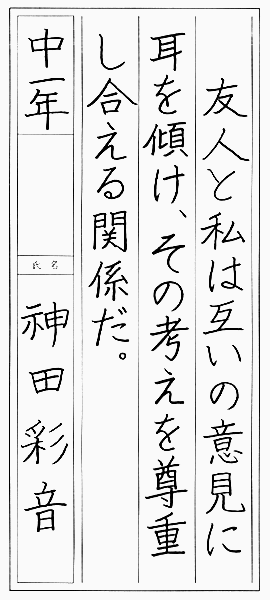 友人と私は互いの意見に
耳を傾け、その考えを尊重
し合える関係だ。
中一年
氏名
神田彩音